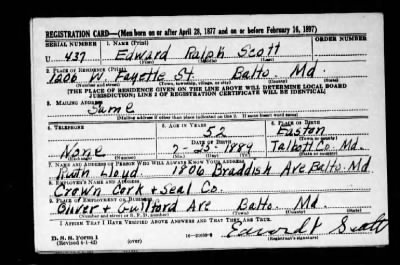 REGISTRATION CARD—(Men born on or after April 28, 1877 and on or before February 16, 1897)
SERIAL NUMBER 1. NAME (Print)
U 437 Edward Ralph Scott
(First) (Middle) (Last)
2. PLACE OF RESIDENCE (Print)
1206 W. Fayette St. Balto. Md.
(Number and street) (Town, township, village, or city) (County) (State)
[THE PLACE OF RESIDENCE GIVEN ON THE LINE ABOVE WILL DETERMINE LOCAL BOARD
JURISDICTION; LINE 2 OF REGISTRATION CERTIFICATE WILL BE IDENTICAL]
3. MAILING ADDRESS
Same
[Mailing address if other than place indicated on line 2. If same insert word same]
4. TELEPHONE 5. AGE IN YEARS 6. PLACE OF BIRTH
52 Easton
DATE OF BIRTH (Town or county)
None 7-25-1889 Talbott Co. Md.
(Exchange) (Number) (Mo.) (Day) (Yr.) (State or country)
7. NAME AND ADDRESS OF PERSON WHO WILL ALWAYS KNOW YOUR ADDRESS
Ruth Lloyd. 1806 Braddish Ave Balto. Md
8. EMPLOYER'S NAME AND ADDRESS
Crown Cork & Seal Co.
9. PLACE OF EMPLOYMENT OR BUSINESS
Oliver & Guilford Ave Balto. Md.
(Number and street or R. F. D. number) (Town) (County) (State)
I AFFIRM THAT I HAVE VERIFIED ABOVE ANSWERS AND THAT THEY ARE TRUE.
D. S. S. Form 1 Edward Scott
(Revised 4-1-42) (over) (Registrant's signature)